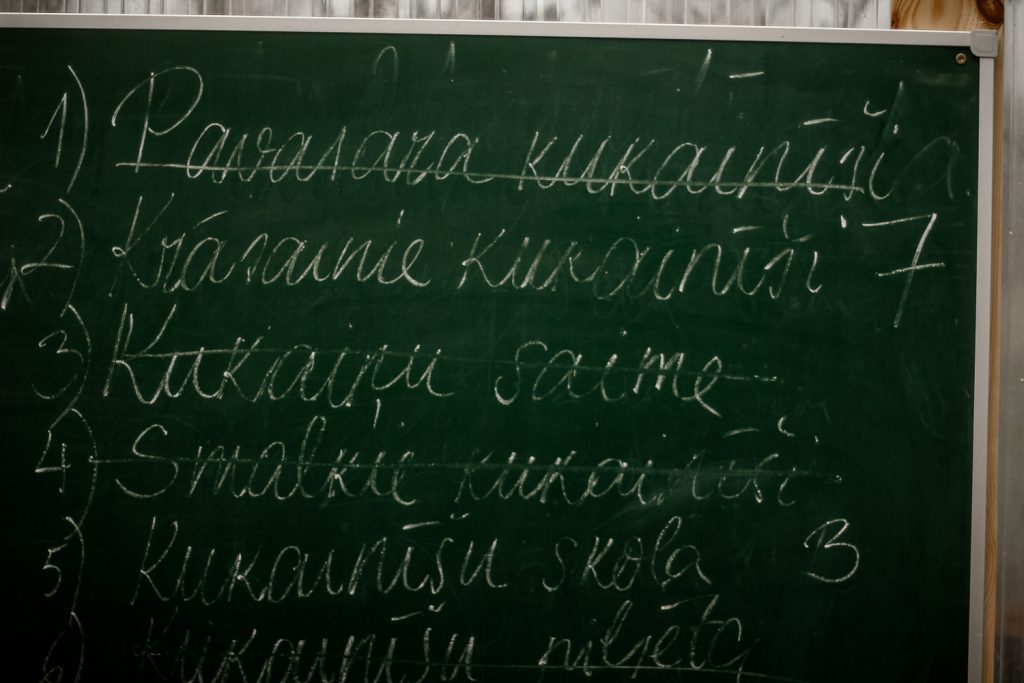 1) Pavasara kukainīši
2) Krāsainie kukainīši 7
3) Kukaiņu saime
4) Smalkie kukainīši
5) Kukainīšu skola 3
6) Kukainīšu pilsēta